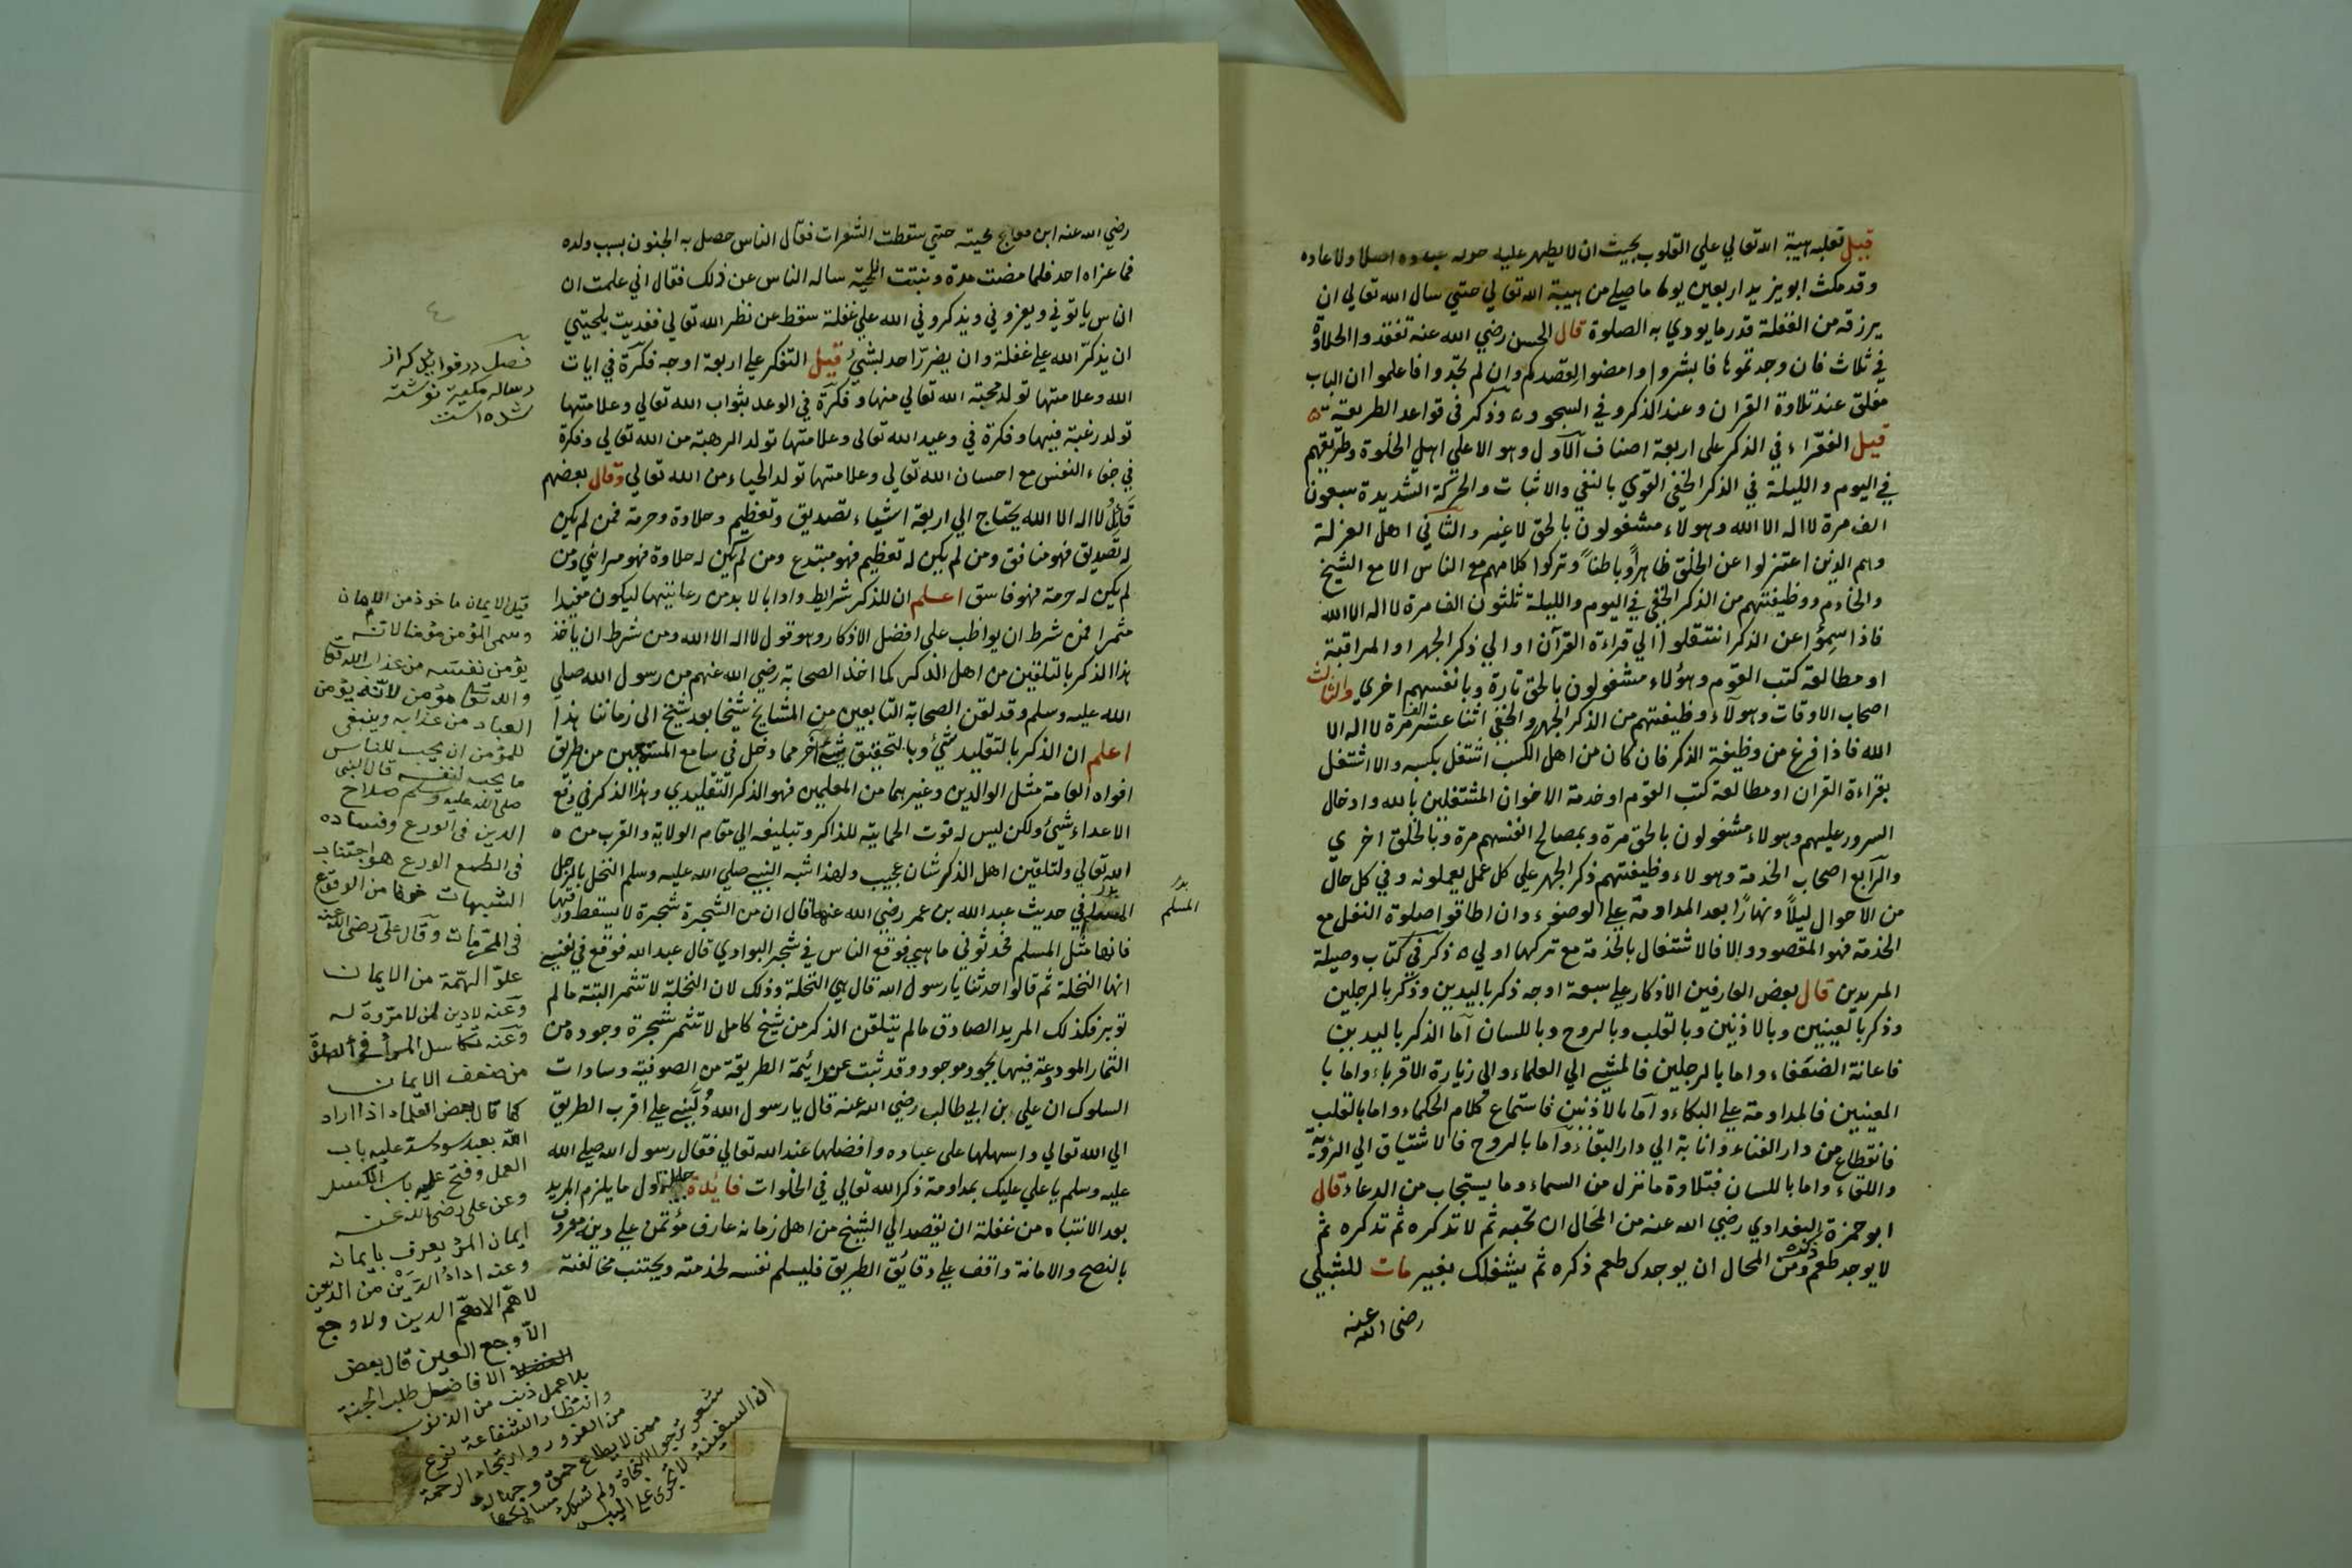 قيل تغلبه هيبة الله تعالي علي القلوب بحيث ان لا يظهر عليه اصلا ولا عاده
وقد مكث ابو يزيد اربعين يوما ما صلي من هيبة الله تعالي حتي سال الله تعالي ان
يرزقه من الغفلة قدر ما يودي به الصلوة قال الحسن رضي الله عنه تفقدوا الحلاوة
في ثلاث فان وجدتموها فابشروا وامضوا لقصدكم وان لم تجدوا فاعلموا ان الباب
مغلق عند تلاوة القران وعند الذكر وفي السجود وذكر في قواعد الطريقة
قيل الفقراء في الذكر على اربعة اصناف الاول وهو الاعلي اهل الخلوة وطريقهم
في اليوم والليلة في الذكر الخفي القوي بالنفي والاثبات والحركة الشديدة سبعون
الف مرة لا اله الا الله وهولاء مشغولون بالحق لا غير والثاني اهل العزلة
وهم الذين اعتزلوا عن الخلق ظاهرا وباطنا وتركوا كلامهم مع الناس الا مع الشيخ
والخادم ووظيفتهم من الذكر الخفي في اليوم والليلة ثلثون الف مرة لا اله الا الله
فاذا سئموا عن الذكر انتقلوا الي قراءة القرآن او الي ذكر الجهر او المراقبة
او مطالعة كتب القوم وهؤلاء مشغولون بالحق تارة وبانفسهم اخري والثالث
اصحاب الاوقات وهولاء وظيفتهم من الذكر الجهر والخفي اثنا عشر الف مرة لا اله الا
الله فاذا فرغ من وظيفة الذكر فان كان من اهل الكسب اشتغل بكسبه والا اشتغل
بقراءة القران او مطالعة كتب القوم او خدمة الاخوان المشتغلين بالله وادخال
السرور عليهم وهولاء مشغولون بالحق مرة وبمصالح انفسهم مرة وبالخلق اخري
والرابع اصحاب الخدمة وهولاء وظيفتهم ذكر الجهر علي كل عمل يعملونه وفي كل حال
من الاحوال ليلا ونهارا بعد المداومة علي الوضوء وان اطاقوا صلوة النفل مع
الخدمة فهو المقصود والا فالاشتغال بالخدمة مع تركها اولي ه ذكر في كتاب وصيلة
المريدين قال بعض العارفين الاذكار علي سبعة اوجه ذكر باليدين وذكر بالرجلين
وذكر بالعينين وبالاذنين وبالقلب وبالروح وباللسان اما الذكر باليدين
فاعانة الضعفاء واما بالرجلين فالمشي الي العلماء والي زيارة الاقرباء واما با
العينين فالمداومة علي البكاء واما بالاذنين فاستماع كلام الحكماء واما بالقلب
فانقطاع من دار الفناء وانابة الي دار البقاء واما بالروح فالاشتياق الي الرؤية
واللقاء واما باللسان فبتلاوة ما نزل من السماء وما يستجاب من الدعاء قال
ابو حمزة البغدادي رضي الله عنه من المحال ان تحبه ثم لا تذكره ثم تذكره ثم
لا يوجد طعم ذكره ومن المحال ان يوجدك طعم ذكره ثم يشغلك بغيره مات للشبلي
رضي الله عنه
رضي الله عنه ابن لحيته حتي سقطت الشعرات فقال الناس حصل به الجنون بسبب ولده
فما عزاه احد فلما مضت مدة ونبتت اللحية ساله الناس عن ذلك فقال اني علمت ان
الناس ياتوني ويعزوني ويذكروني الله علي غفلة سقط عن نظر الله تعالي ففديت بلحيتي
ان يذكر الله علي غفلة وان يضر احد بشيء قيل التفكر علي اربعة اوجه فكرة في ايات
الله وعلامتها تولد محبة الله تعالي منها وفكرة في الوعد بثواب الله تعالي وعلامتها
تولد رغبة فيها وفكرة في وعيد الله تعالى وعلامتها تولد الرهبة من الله تعالي وفكرة
في جفاء النفس مع احسان الله تعالي وعلامتها تولد الحياء من الله تعالي وقال بعضهم
قائل لا اله الا الله يحتاج الي اربعة اشياء تصديق وتعظيم وحلاوة وحرمة فمن لم يكن
له تصديق فهو منافق ومن لم يكن له تعظيم فهو مبتدع ومن لم يكن له حلاوة فهو مرائي ومن
لم يكن له حرمة فهو فاسق اعلم ان للذكر شرايط وادابا لا بد من رعايتها ليكون مفيدا
مثمرا فمن شرط ان يواظب على افضل الاذكار وهو قول لا اله الا الله ومن شرط ان ياخذ
هذا الذكر بالتلقين من اهل الذكر كما اخذ الصحابة رضي الله عنهم من رسول الله صلي
الله عليه وسلم وقد لقن الصحابة التابعين من المشايخ شيخا بعد شيخ الي زماننا هذا
اعلم ان الذكر بالتقليد شئ وبالتحقيق شئ آخر مما دخل في سامع المستمعين من طريق
افواه العامة مثل الوالدين وغيرهما من المعلمين فهو الذكر التقليدي وهذا الذكر في دفع
الاعداء شئ ولكن ليس له قوت الحماية للذاكر وتبليغه الي مقام الولاية والقرب من ه
الله تعالي ولتلقين اهل الذكر شان عجيب ولهذا شبه النبي صلي الله عليه وسلم النخل بالرجل
المسلم في حديث عبد الله بن عمر رضي الله عنهما قال ان من الشجرة شجرة لا يسقط ورقتها
فانها مثل المسلم فحدثوني ما هي فوقع الناس في شجر البوادي قال عبد الله فوقع في نفسي
انها النخلة ثم قالوا حدثنا يا رسول الله قال هي النخلة وذلك لان النخلة لا تثمر البتة ما لم
توبر فكذلك المريد الصادق ما لم يتلقن الذكر من شيخ كامل لا تثمر شجرة وجوده من
الثمار المودعة فيها بجود موجود وقد ثبت عن ائمة الطريقة من الصوفية وسادات
السلوك ان علي بن ابي طالب رضي الله عنه قال يا رسول الله دلني علي اقرب الطريق
الي الله تعالي واسهلها على عباده وافضلها عند الله تعالي فقال رسول الله صلي الله
عليه وسلم يا علي عليك بمداومة ذكر الله تعالي في الخلوات فايدة جليلة اول ما يلزم المريد
بعد الانتباه من غفلة ان يقصد الي الشيخ من اهل زمانه عارف مؤتمن علي دينه معروف
بالنصح والامانة واقف علي دقائق الطريق فليسلم نفسه لخدمته ويجتنب مخالفته
المسلم
فصل در فوائد كه از
رساله مكية نوشته
شده است
قيل الايمان ماخوذ من الامان
وسمى المؤمن مؤمنا لانه
يؤمن نفسه من عذاب الله تعا
والله تعا مؤمن لانه يؤمن
العباد من عذابه وينبغي
للمؤمن ان يحب للناس
ما يحب لنفسه قال النبي
صلى الله عليه وسلم صلاح
الدين في الورع وفساده
في الطمع الورع هو اجتناب
الشبهات خوفا من الوقوع
في المحرمات وقال علي رضي الله عنه
علو الهمة من الايمان
وعنه لا دين لمن لا مروة له
وعنه تكاسل المرأ في الصلوة
من ضعف الايمان
كما قال بعض العلماء اذا اراد
الله بعبد سوء سد عليه باب
العمل وفتح عليه باب الكسل
وعن علي رضي الله عنه
ايمان المرء يعرف بايمانه
وعنه اداء الدين من الدين
لا هم الا هم الدين ولا وجع
الا وجع العين قال بعض
الافاضل طلب الجنة
بلا عمل ذنب من الذنوب
وانتظار الشفاعة نوع
من الغرور وارتجاء الرحمة
ممن لا يطاع حمق وجهالة
شعر ترجو النجاة ولم تسلك مسالكها
ان السفينة لا تجري علي اليبس